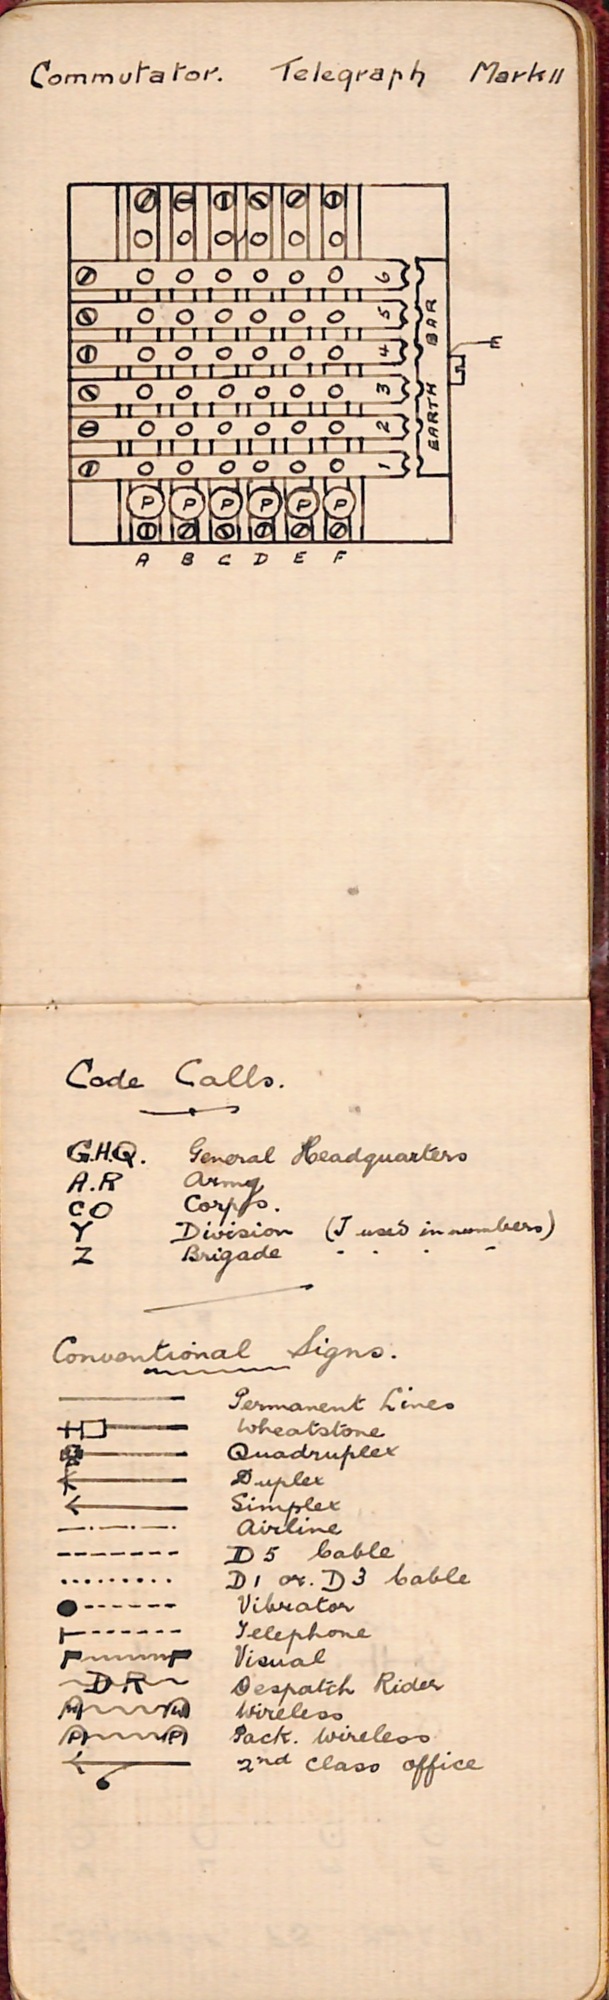 Commutator. Telegraph Mark II
6
5
4
3
2
1
EARTH BAR
E
P P P P P P
A B C D E F
Code Calls.
G.H.Q. General Headquarters
A.R Army
CO Corps.
Y Division (I used in numbers)
Z Brigade " " " "
Conventional Signs.
Permanent Lines
Wheatstone
Quadruplex
Duplex
Simplex
Airline
D5 Cable
D1 or. D3 Cable
Vibrator
Telephone
Visual
DR Despatch Rider
W W Wireless
P P Pack. Wireless
2nd class office